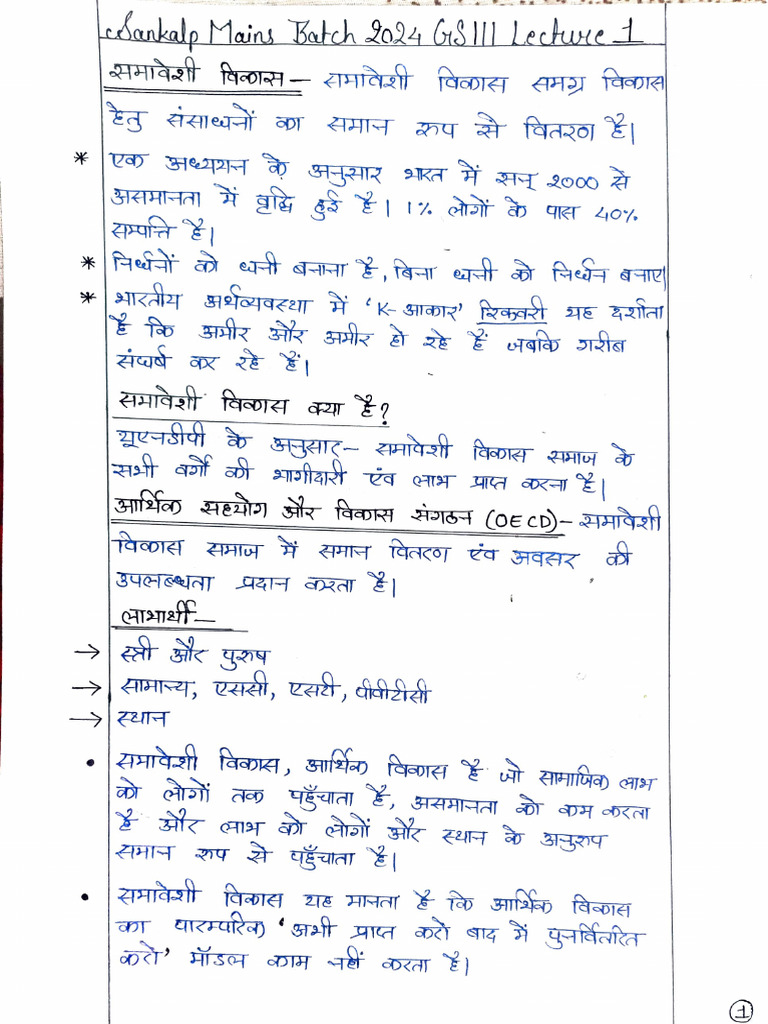 Sankalp Mains Batch 2024 GSIII Lecture 1
समावेशी विकास – समावेशी विकास समग्र विकास
हेतु संसाधनों का समान रूप से वितरण है।
* एक अध्ययन के अनुसार भारत में सन् 2000 से
असमानता में वृद्धि हुई है। 1% लोगों के पास 40%
सम्पत्ति है।
* निर्धनों को धनी बनाना है, बिना धनी को निर्धन बनाए।
* भारतीय अर्थव्यवस्था में 'K-आकार' रिकवरी यह दर्शाता
है कि अमीर और अमीर हो रहे हैं जबकि गरीब
संघर्ष कर रहे हैं।
समावेशी विकास क्या है?
यूएनडीपी के अनुसार– समावेशी विकास समाज के
सभी वर्गों की भागीदारी एंव लाभ प्राप्त करना है।
आर्थिक सहयोग और विकास संगठन (OECD)– समावेशी
विकास समाज में समान वितरण एंव अवसर की
उपलब्धता प्रदान करता है।
लाभार्थी–
→ स्त्री और पुरुष
→ सामान्य, एससी, एसटी, पीवीटीसी
→ स्थान
• समावेशी विकास, आर्थिक विकास है जो सामाजिक लाभ
को लोगों तक पहुँचाता है, असमानता को कम करता
है और लाभ को लोगों और स्थान के अनुरुप
समान रूप से पहुँचाता है।
• समावेशी विकास यह मानता है कि आर्थिक विकास
का पारम्परिक 'अभी प्राप्त करो बाद में पुनर्वितरित
करो' मॉडल काम नहीं करता है।
1